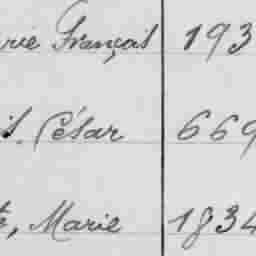 rie Français 193
s. César 669
te, Marie 1834